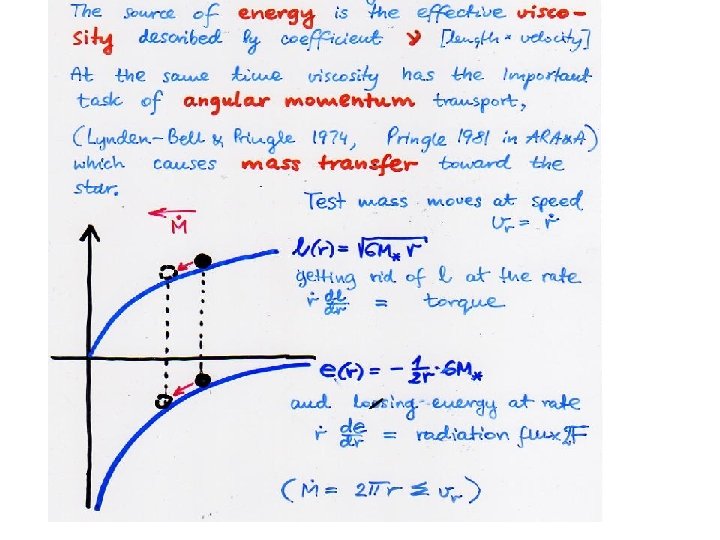 The source of energy is the effective visco-
sity described by coefficient ν [length * velocity]
At the same time viscosity has the important
task of angular momentum transport,
(Lynden-Bell & Pringle 1974, Pringle 1981 in ARA&A)
which causes mass transfer toward the
star.
Test mass moves at speed
v_r = ṙ
Ṁ
l(r) = √GM* r
getting rid of l at the rate
ṙ dl/dr = torque
e(r) = - 1/2r · GM*
and loosing energy at rate
ṙ de/dr = radiation flux 2F
(Ṁ = 2πr Σ v_r)